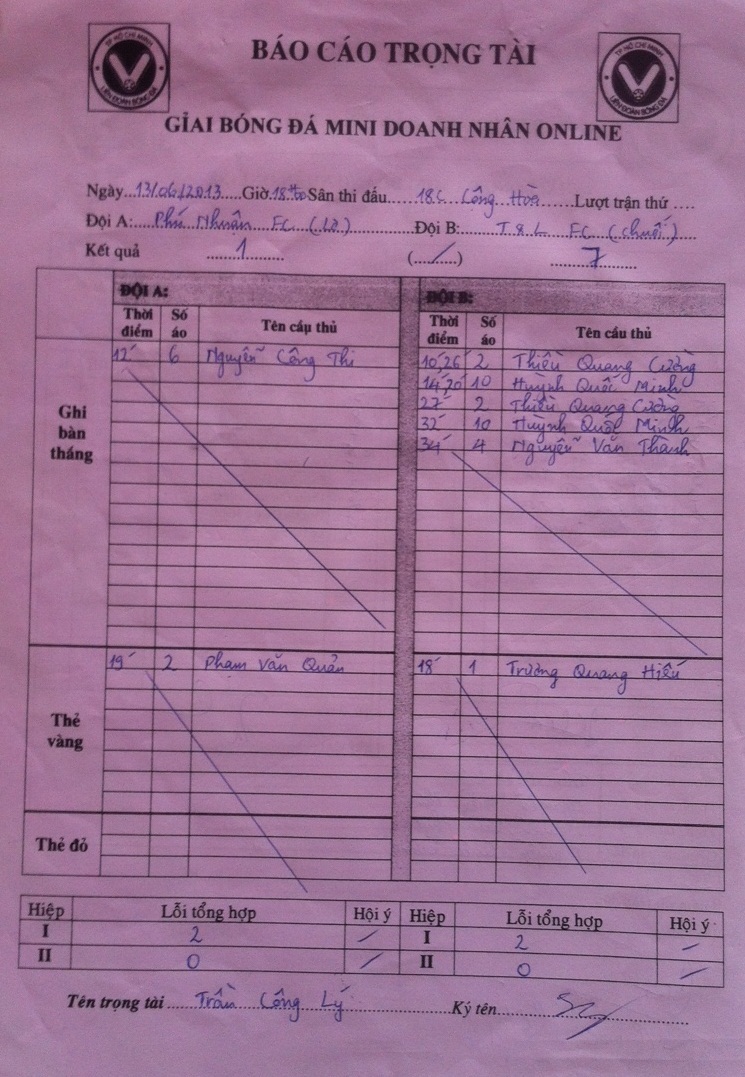 TP. HỒ CHÍ MINH
LIÊN ĐOÀN BÓNG ĐÁ
BÁO CÁO TRỌNG TÀI
TP. HỒ CHÍ MINH
LIÊN ĐOÀN BÓNG ĐÁ
GIẢI BÓNG ĐÁ MINI DOANH NHÂN ONLINE
Ngày...13/06/2013.....Giờ.18H00 Sân thi đấu.....18C Cộng Hòa......Lượt trận thứ ....
Đội A:...Phú Nhuận FC (Lá)..........Đội B:.......T&L FC (Chuối)
Kết quả ......1...... (../..) ......7......
ĐỘI A: ĐỘI B:
Thời điểm Số áo Tên cầu thủ Thời điểm Số áo Tên cầu thủ
Ghi bàn thắng
12' 6 Nguyễn Công Thi 10',26' 2 Thiệu Quang Cường
14',20' 10 Huỳnh Quốc Minh
27' 2 Thiệu Quang Cường
32' 10 Huỳnh Quốc Minh
34' 4 Nguyễn Văn Thành
Thẻ vàng
19' 2 Phạm Văn Quản 18' 1 Trương Quang Hiếu
Thẻ đỏ
Hiệp Lỗi tổng hợp Hội ý Hiệp Lỗi tổng hợp Hội ý
I 2 / I 2 /
II 0 / II 0 /
Tên trọng tài......Trần Công Lý..........Ký tên..........